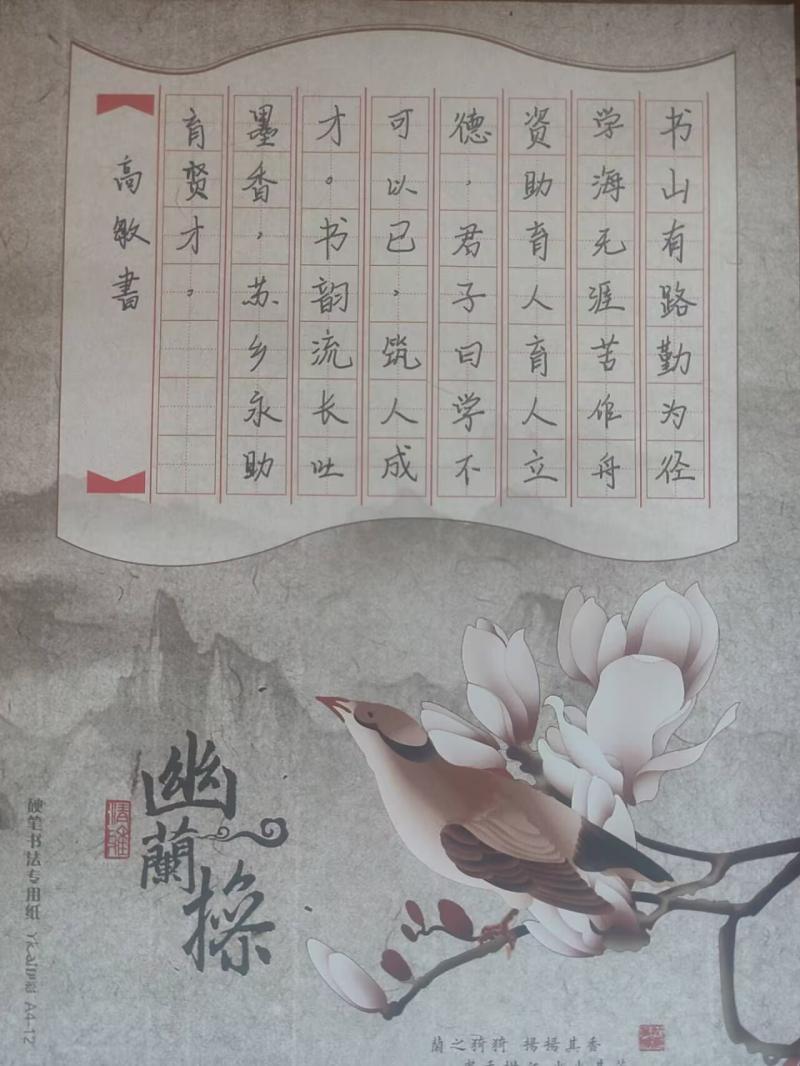 书山有路勤为径
学海无涯苦作舟
资助育人育人立
德，君子曰学不
可以已，筑人成
才。书韵流长吐
墨香，苏乡永助
育贤才。
高敏書
幽蘭操
清雅
硬笔书法专用纸 A4-12
蘭之猗猗 揚揚其香